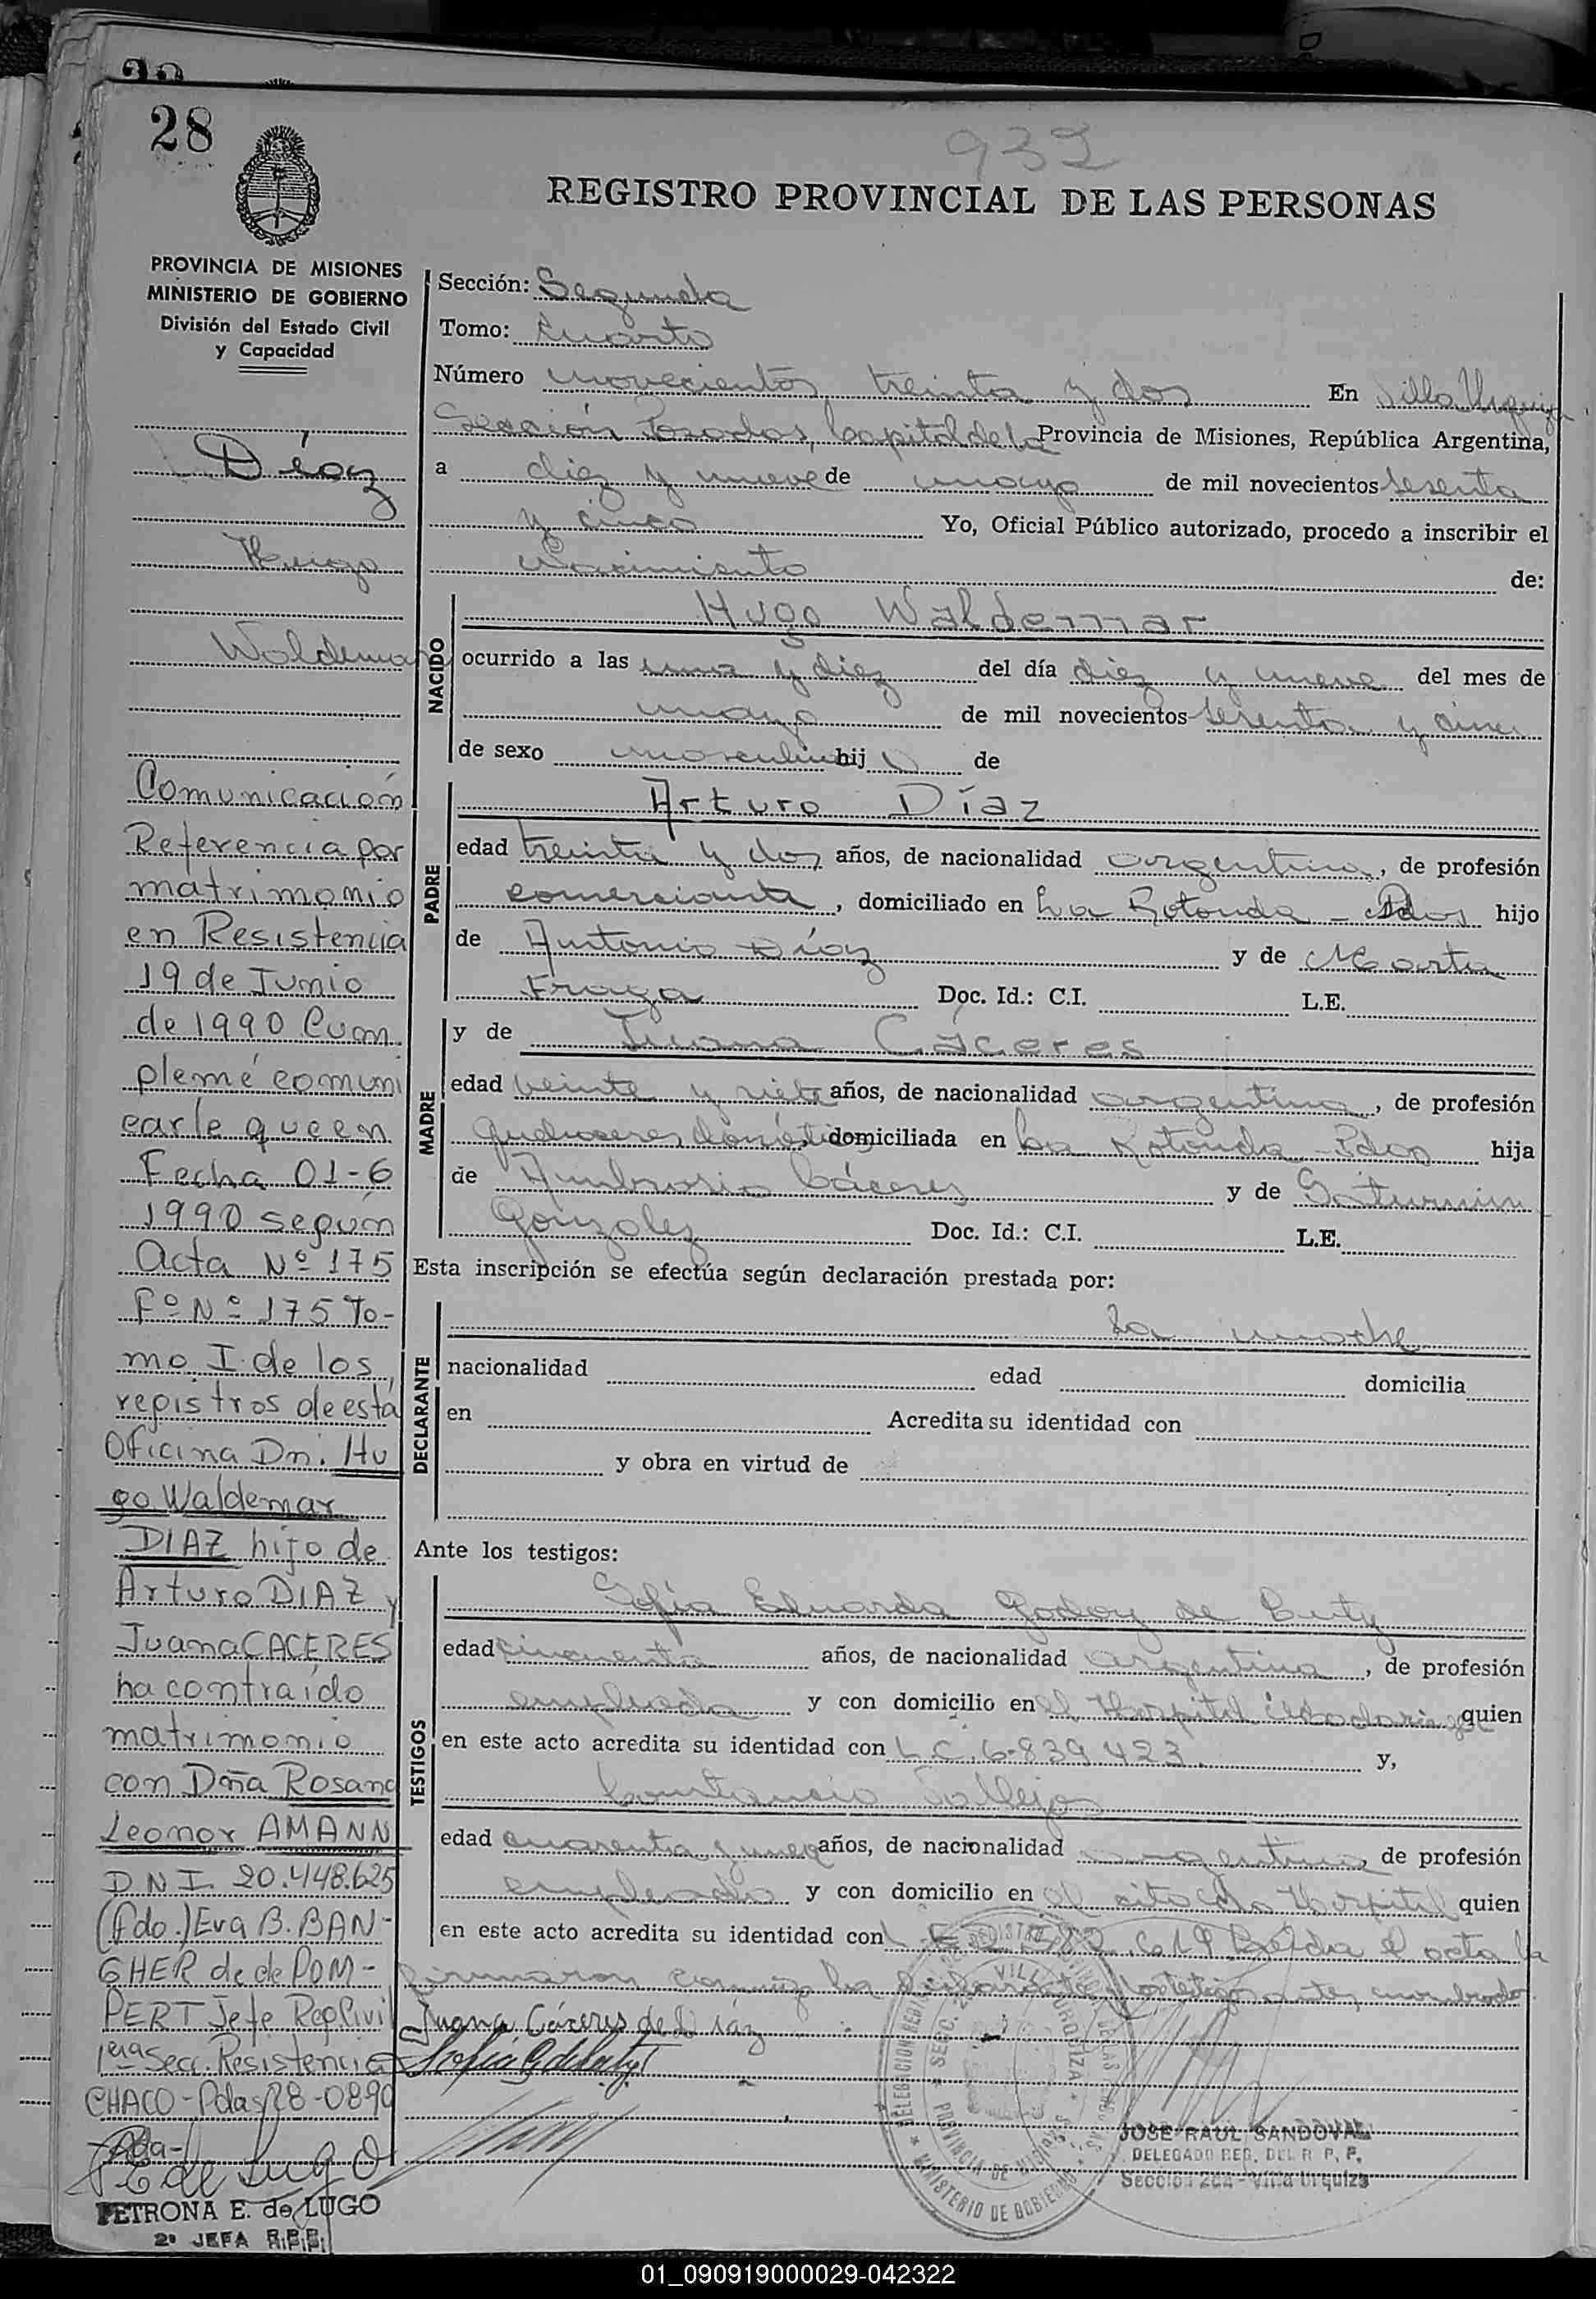 28
932
REGISTRO PROVINCIAL DE LAS PERSONAS
PROVINCIA DE MISIONES
MINISTERIO DE GOBIERNO
División del Estado Civil
y Capacidad
Díaz
Hugo
Waldemar
Comunicación
Referencia por
matrimonio
en Resistencia
19 de Junio
de 1990 Cum
pleme comuni
carle que en
Fecha 01-6
1990 según
Acta Nº 175
Fº Nº 175 To-
mo I de los
registros de esta
Oficina Dn. Hu
go Waldemar
DIAZ hijo de
Arturo DIAZ y
Juana CACERES
ha contraído
matrimonio
con Dña Rosana
Leonor AMANN
DNI. 20.448.625
(fdo.) Eva B. BAN-
GHER de de POM-
PERT Jefe Reg Civil
1era Secc. Resistencia
CHACO - Pdas 28-0890
PETRONA E. de LUGO
2ª JEFA R.P.P.
Sección: Segunda
Tomo: Cuarto
Número novecientos treinta y dos En Villa Urquiza
Sección Posadas, Capital de la Provincia de Misiones, República Argentina,
a diez y nueve de mayo de mil novecientos sesenta
y cinco Yo, Oficial Público autorizado, procedo a inscribir el
Nacimiento de:
NACIDO
Hugo Waldemar
ocurrido a las una y diez del día diez y nueve del mes de
mayo de mil novecientos sesenta y cinco
de sexo masculino hij o de
PADRE
Arturo Díaz
edad treinta y dos años, de nacionalidad argentino, de profesión
comerciante, domiciliado en La Rotonda - Pdas hijo
de Antonio Díaz y de Marta
Fraga Doc. Id.: C.I. L.E.
MADRE
y de Juana Cáceres
edad veinte y siete años, de nacionalidad argentina, de profesión
quehaceres domésticos, domiciliada en La Rotonda - Pdas hija
de Ambrosio Cáceres y de Saturnina
Gonzalez Doc. Id.: C.I. L.E.
Esta inscripción se efectúa según declaración prestada por:
DECLARANTE
La madre
nacionalidad edad domicilia
en Acredita su identidad con
y obra en virtud de
Ante los testigos:
TESTIGOS
Sofía Eduarda Godoy de
edad cincuenta años, de nacionalidad argentina, de profesión
empleada y con domicilio en el Hospital Madariaga quien
en este acto acredita su identidad con L.C. 6-839.423. y,
Constancio Vallejos
edad cuarenta y nueve años, de nacionalidad argentino, de profesión
empleado y con domicilio en el citado Hospital quien
en este acto acredita su identidad con L.E. Leída el acta la
firmaron conmigo la declarante y los testigos antes nombrados
Juana Cáceres de Díaz
JOSE RAUL SANDOVAL
DELEGADO REG. DEL R. P. P.
Sección 2da - Villa Urquiza
01_090919000029-042322